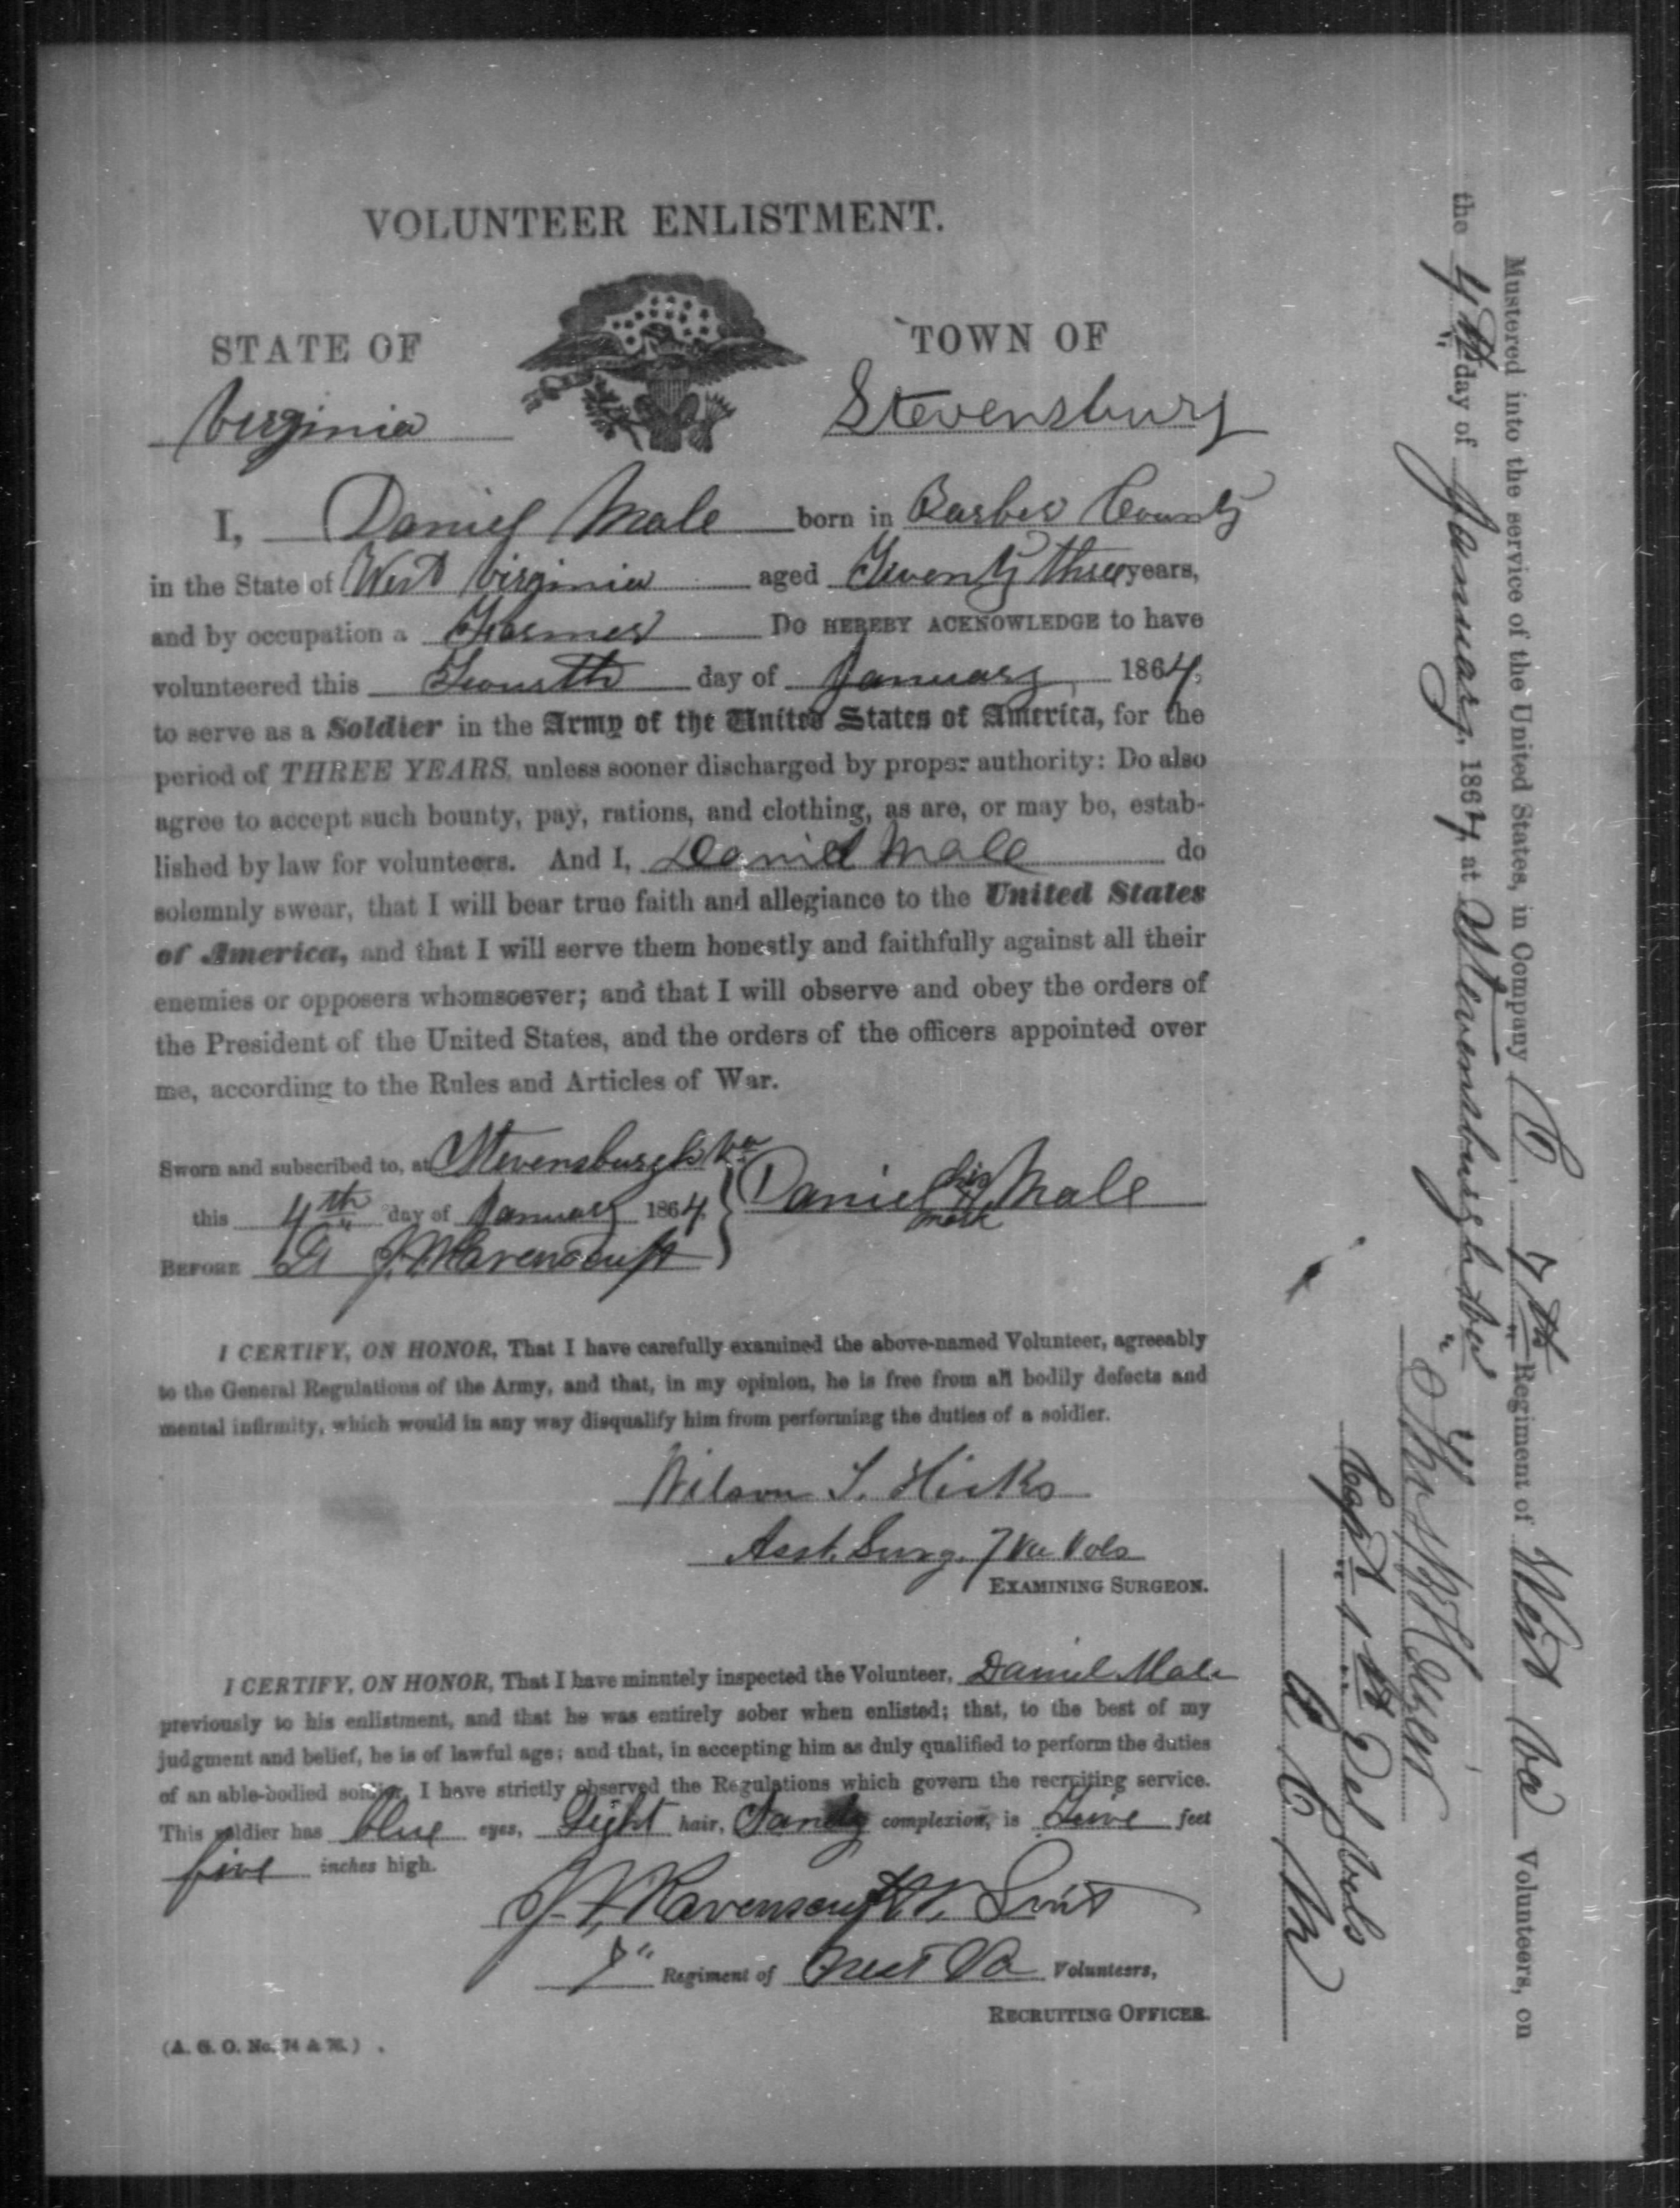 VOLUNTEER ENLISTMENT.
STATE OF
Virginia
TOWN OF
Stevensburg
I, Daniel Male born in Barber County
in the State of West Virginia aged Twenty three years,
and by occupation a Farmer Do HEREBY ACKNOWLEDGE to have
volunteered this Fourth day of January, 1864,
to serve as a Soldier in the Army of the United States of America, for the
period of THREE YEARS, unless sooner discharged by proper authority: Do also
agree to accept such bounty, pay, rations, and clothing, as are, or may be, estab-
lished by law for volunteers. And I, Daniel Male do
solemnly swear, that I will bear true faith and allegiance to the United States
of America, and that I will serve them honestly and faithfully against all their
enemies or opposers whomsoever; and that I will observe and obey the orders of
the President of the United States, and the orders of the officers appointed over
me, according to the Rules and Articles of War.
Sworn and subscribed to, at Stevensburgh Va
this 4th day of January 1864
Daniel his X mark Male
BEFORE Lt J. W. Ravenscraft
I CERTIFY, ON HONOR, That I have carefully examined the above-named Volunteer, agreeably
to the General Regulations of the Army, and that, in my opinion, he is free from all bodily defects and
mental infirmity, which would in any way disqualify him from performing the duties of a soldier.
Wilson S. Hicks
Asst. Surg. 7 Va Vols
EXAMINING SURGEON.
I CERTIFY, ON HONOR, That I have minutely inspected the Volunteer, Daniel Male
previously to his enlistment, and that he was entirely sober when enlisted; that, to the best of my
judgment and belief, he is of lawful age; and that, in accepting him as duly qualified to perform the duties
of an able-bodied soldier, I have strictly observed the Regulations which govern the recruiting service.
This soldier has blue eyes, Light hair, Sandy complexion, is Five feet
five inches high.
J. W. Ravenscraft Lieut
7" Regiment of West Va Volunteers,
RECRUITING OFFICER.
(A. G. O. No. 74 & 76.)
Mustered into the service of the United States, in Company C, 7th Regiment of West Va Volunteers, on
the 4th day of January, 1864, at Stevensburgh Va
Capt 1st Del Vols
A C M